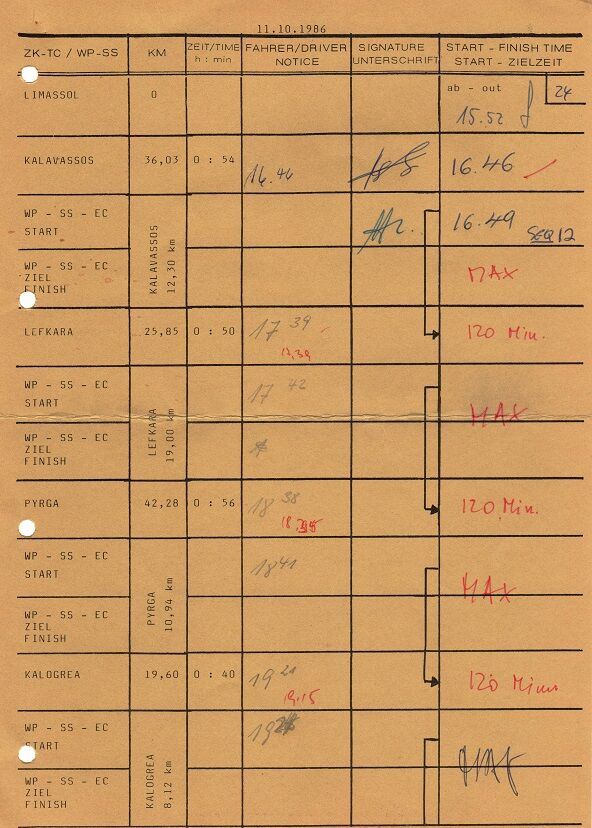 11.10.1986
ZK-TC / WP-SS KM ZEIT/TIME FAHRER/DRIVER SIGNATURE START - FINISH TIME
h : min NOTICE UNTERSCHRIFT START - ZIELZEIT
LIMASSOL 0 ab - out 24
15.52
KALAVASSOS 36,03 0 : 54 16.46 16.46
WP - SS - EC 16.49
START SEQ 12
KALAVASSOS
12,30 km
WP - SS - EC MAX
ZIEL
FINISH
LEFKARA 25,85 0 : 50 17 39 120 Min.
17,39
WP - SS - EC 17 42
START
MAX
LEFKARA
19,00 km
WP - SS - EC
ZIEL
FINISH
PYRGA 42,28 0 : 56 18 38 120 Min.
WP - SS - EC 18 41
START
MAX
PYRGA
10,94 km
WP - SS - EC
ZIEL
FINISH
KALOGREA 19,60 0 : 40 19 21 120 Min
19.15
WP - SS - EC
START
MAX
KALOGREA
8,12 km
WP - SS - EC
ZIEL
FINISH